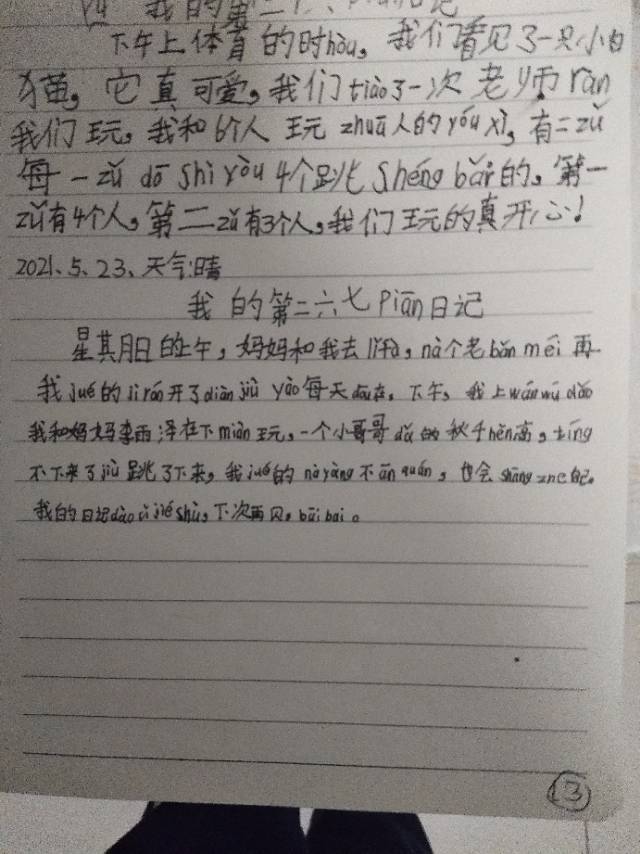 我的第二
下午上体育的时hòu，我们看见了一只小白
猫，它真可爱，我们tiào了一次老师ràn
我们玩，我和6个人玩zhuā人的yóu xì，有二zǔ
每一zǔ dō shì yòu 4个跳shéng bǎr的。第一
zǔ有4个人，第二zǔ有3个人，我们玩的真开心！
2021、5、23、天气:晴
我的第二六七piān日记
星其日的上午，妈妈和我去lǐfà，nà个老bǎn měi再
我jué的jì rán开了diàn jiù yào每天dōu在，下午，我上wán wǔ dǎo
我和妈妈李雨泽在下miàn玩，一个小哥哥dǎ的秋千hěn高，tíng
不下来了jiù跳了下来，我jué的nà yàng不ān quán，也会shāng zhe自己。
我的日记dào cǐ jié shù，下次再见，bāi bai。
13